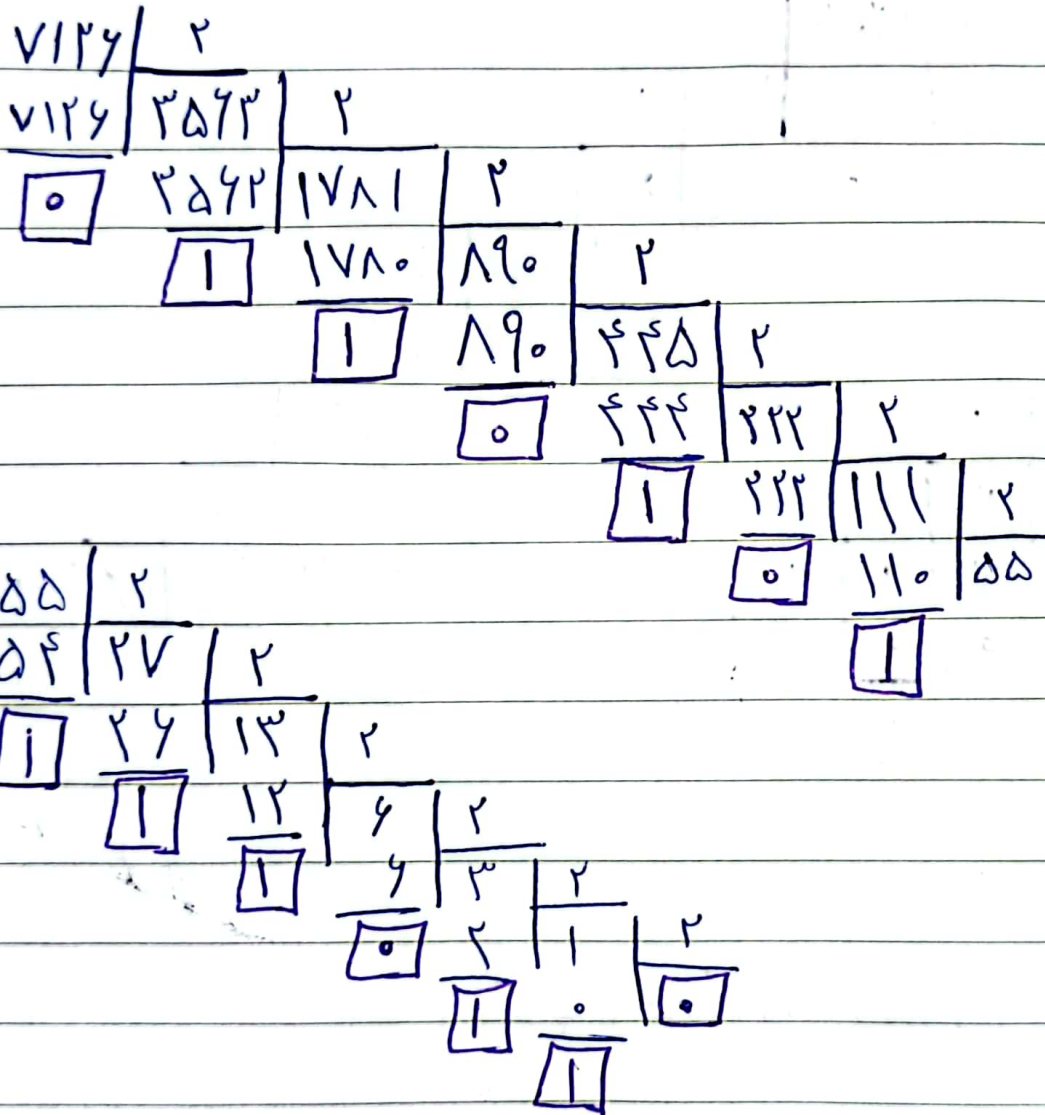 ۷۱۲۶ ۲
۷۱۲۶ ۳۵۶۳ ۲
۰ ۳۵۶۲ ۱۷۸۱ ۲
۱ ۱۷۸۰ ۸۹۰ ۲
۱ ۸۹۰ ۴۴۵ ۲
۰ ۴۴۴ ۲۲۲ ۲
۱ ۲۲۲ ۱۱۱ ۲
۰ ۱۱۰ ۵۵
۱
۵۵ ۲
۵۴ ۲۷ ۲
۱ ۲۶ ۱۳ ۲
۱ ۱۲ ۶ ۲
۱ ۶ ۳ ۲
۰ ۲ ۱ ۲
۱ ۰ ۰
۱